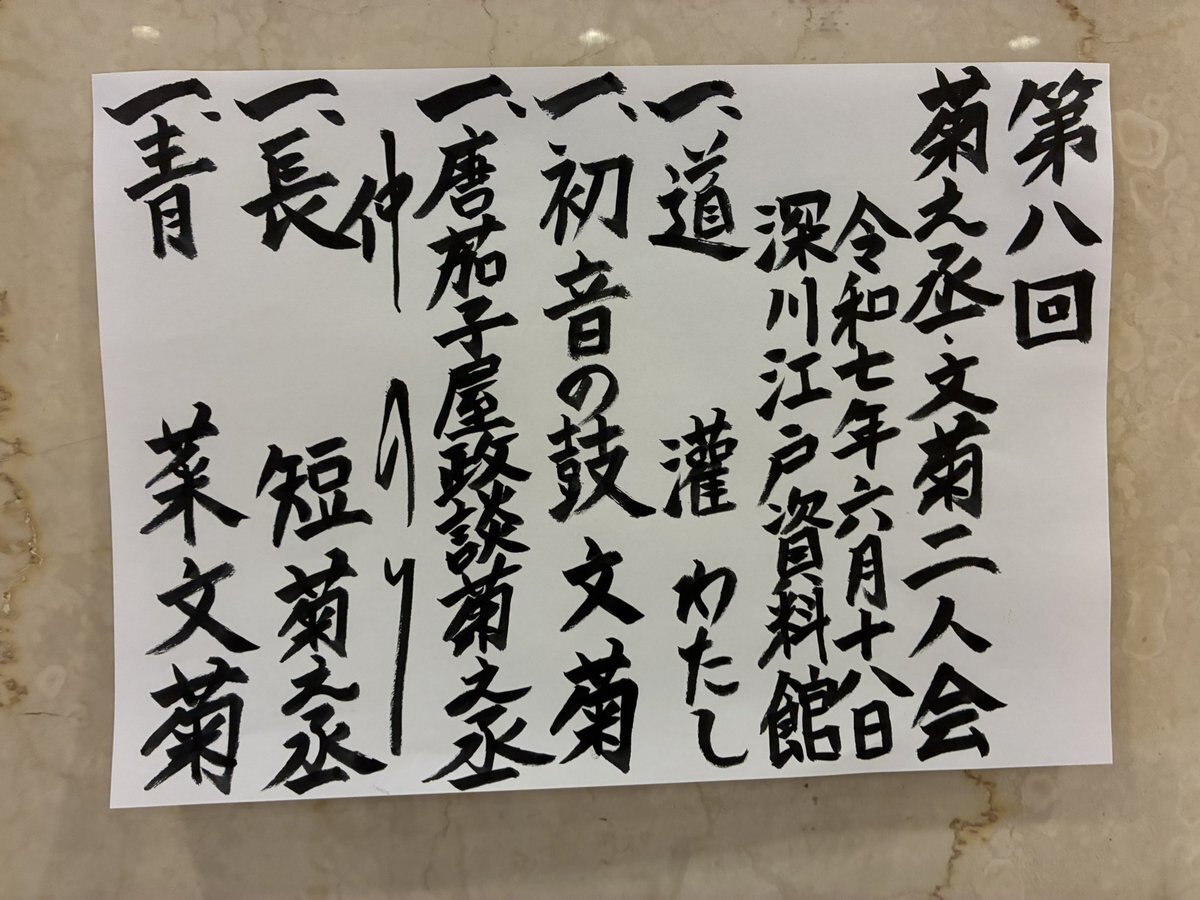 第八回
菊之丞・文菊二人会
令和七年六月十八日
深川江戸資料館
一、道灌 わたし
一、初音の鼓 文菊
一、唐茄子屋政談 菊之丞
仲入り
一、長短 菊之丞
一、青菜 文菊